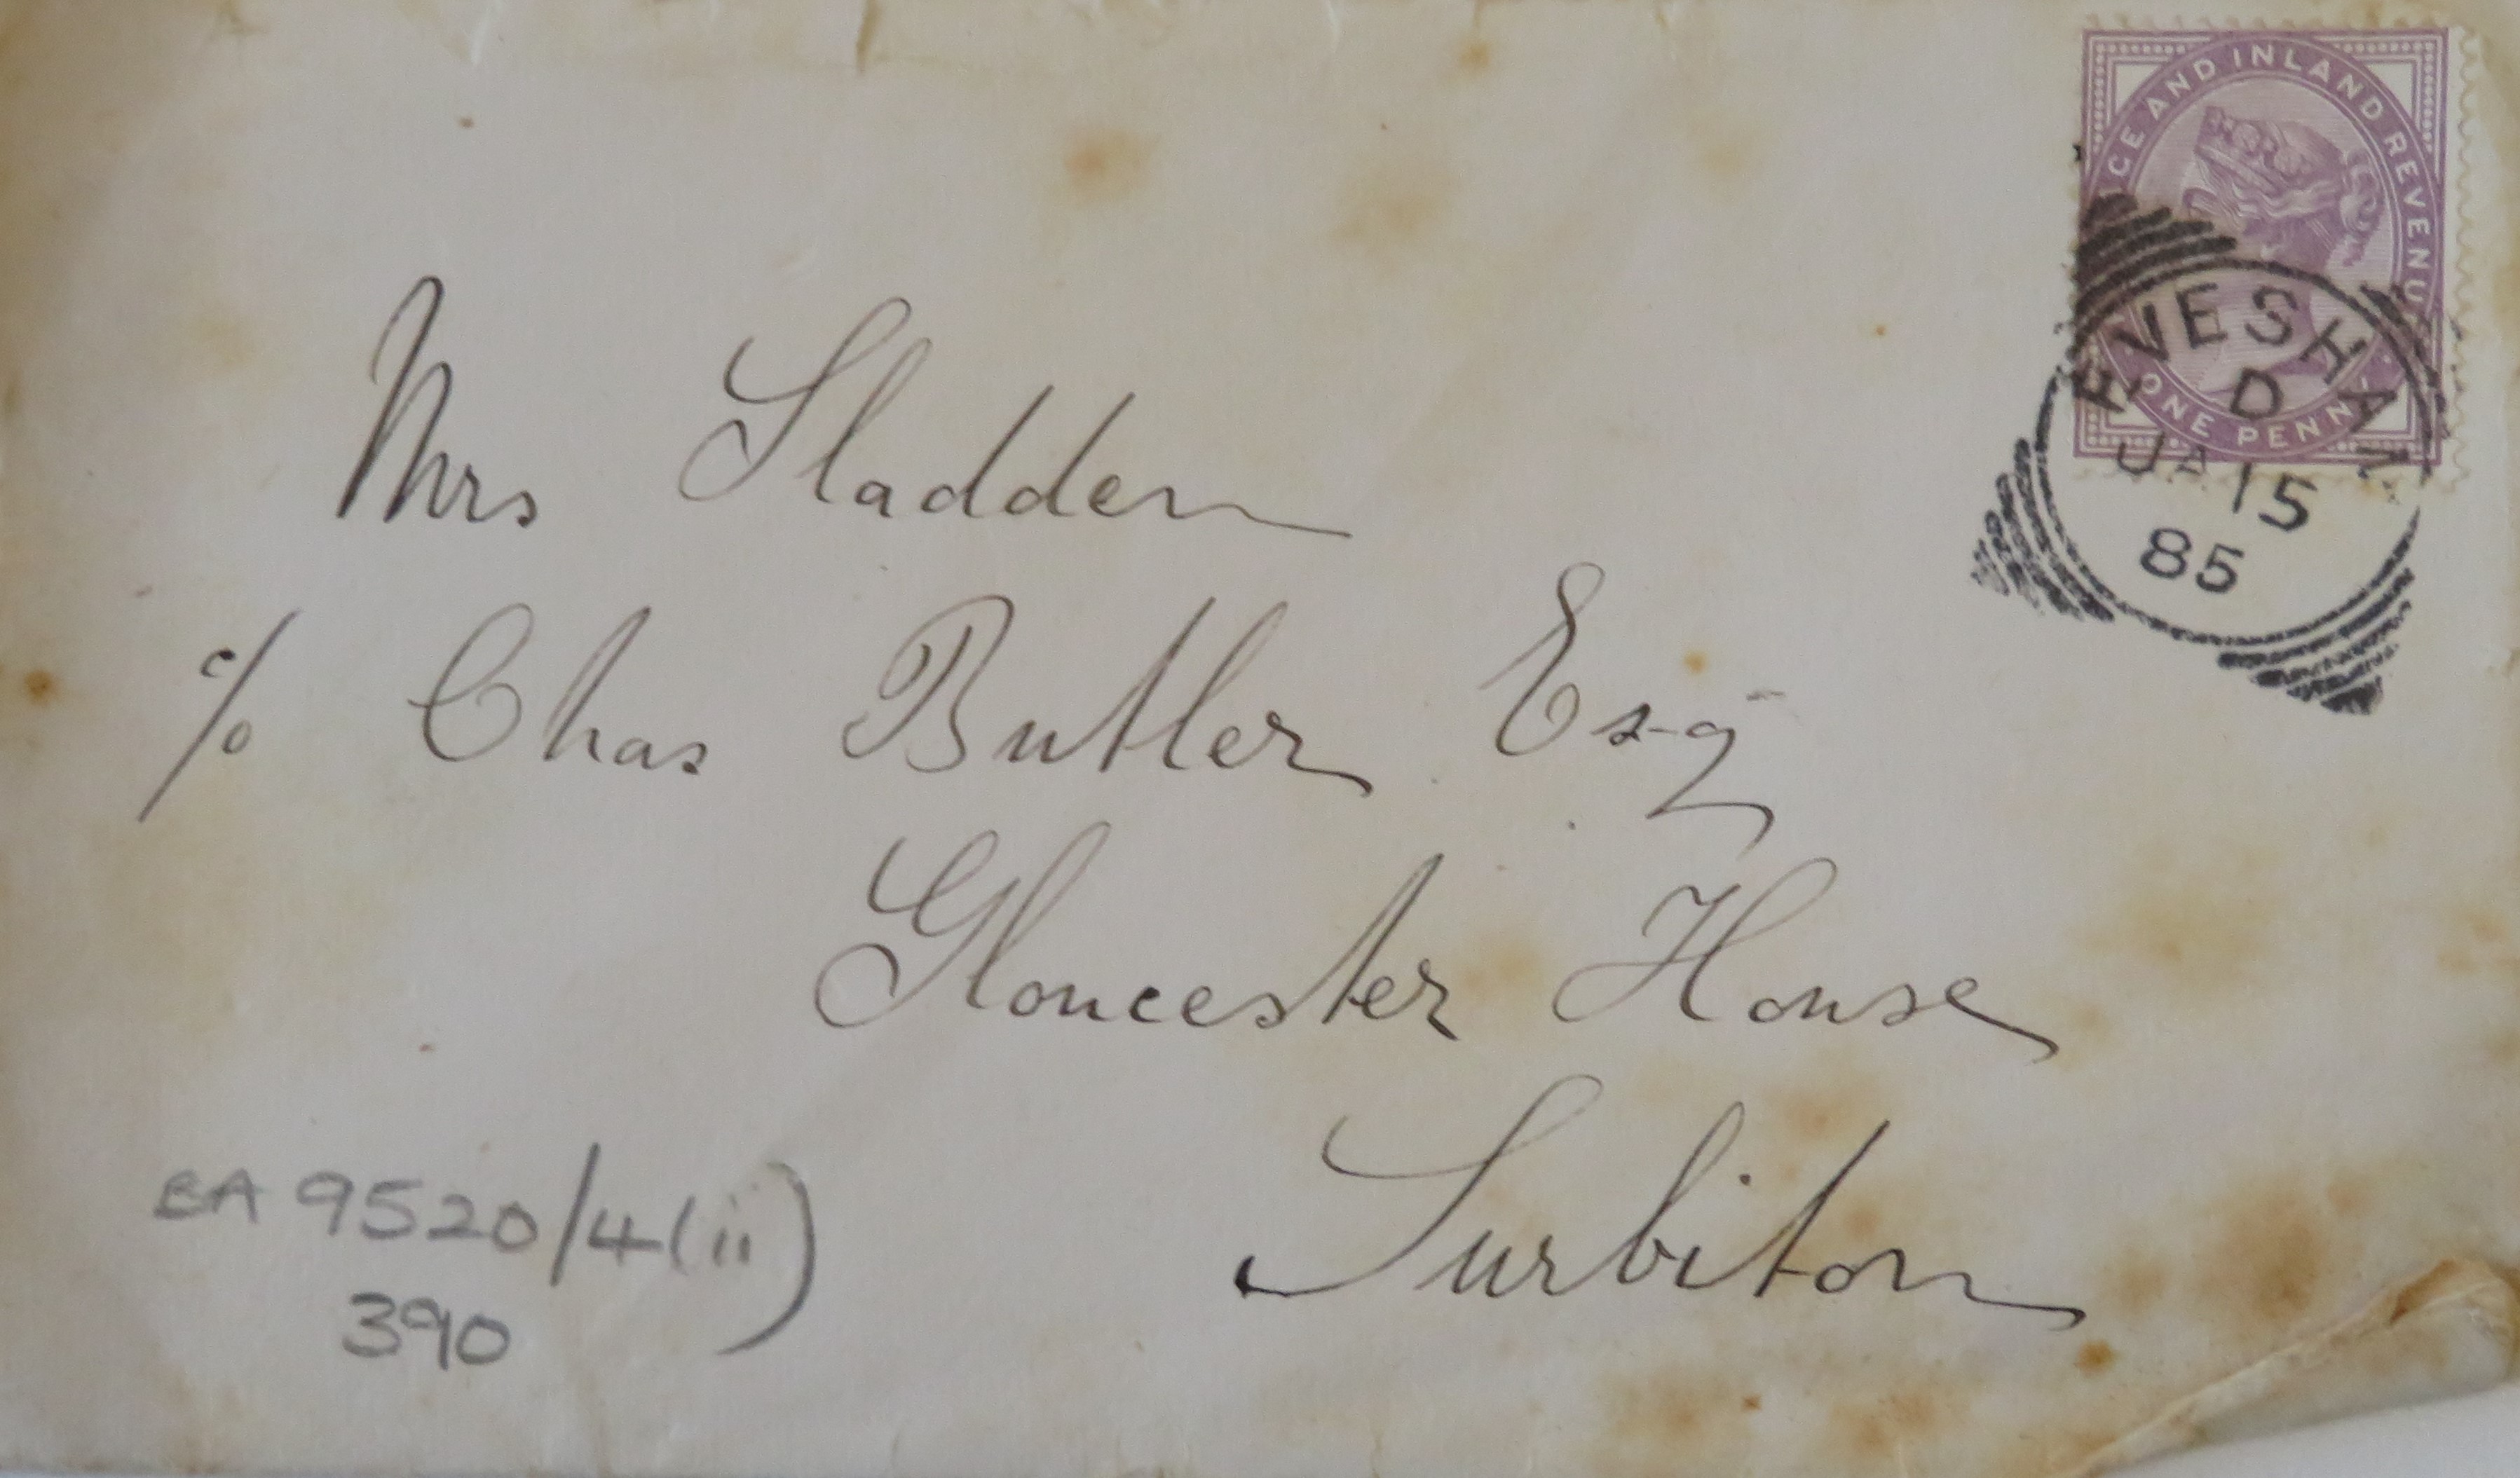 CE AND INLAND REVENU
ONE PENN
EVESHAM
D
JA 15
85
Mrs Sladden
c/o Chas Butler Esq
Gloucester House
Surbiton
BA 9520/4(ii)
390